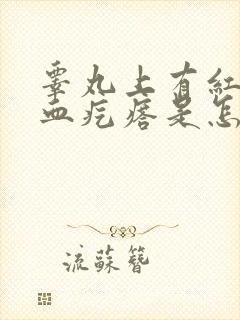 睾丸上有红
血疙瘩是怎
流蘇簪